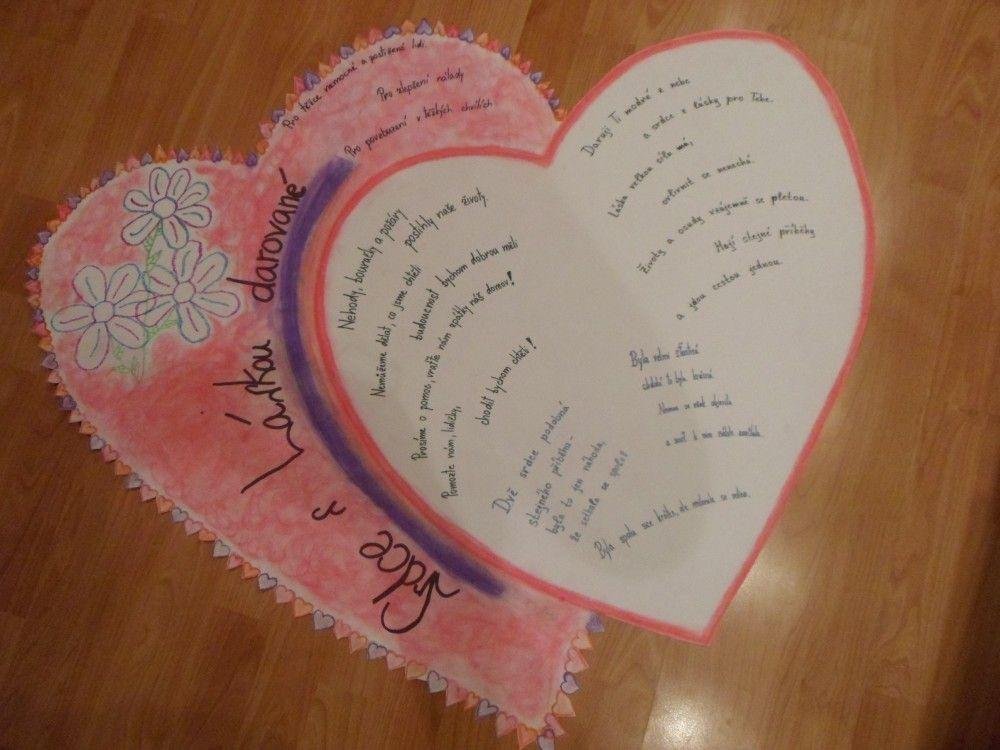 Srdce s láskou darované
Pro těžce nemocné a postižené lidi.
Pro zlepšení nálady
Pro povzbuzení v těžkých chvílích
Nehody, bouračky a požáry
postihly naše životy.
Nemůžeme dělat, co jsme chtěli
budoucnost bychom dobrou měli
Prosíme o pomoc, vraťte nám zpátky náš domov!
Pomozte nám, lidičky,
chodit bychom chtěli!
Dvě srdce podobná
stejného příběhu -
byla to jen náhoda,
že setkala se spolu?
Daruji Ti modré z nebe
a srdce z lásky pro Tebe.
Láska velkou sílu má,
ovlivnit se nenechá.
Životy a osudy vzájemně se pletou.
Mají stejné příběhy
a jdou cestou jednou.
Byla velmi šťastná
období to byla krásná
Nemoc se však objevila
a smrt k nim
Byla spolu sice krátce, ale milovala se